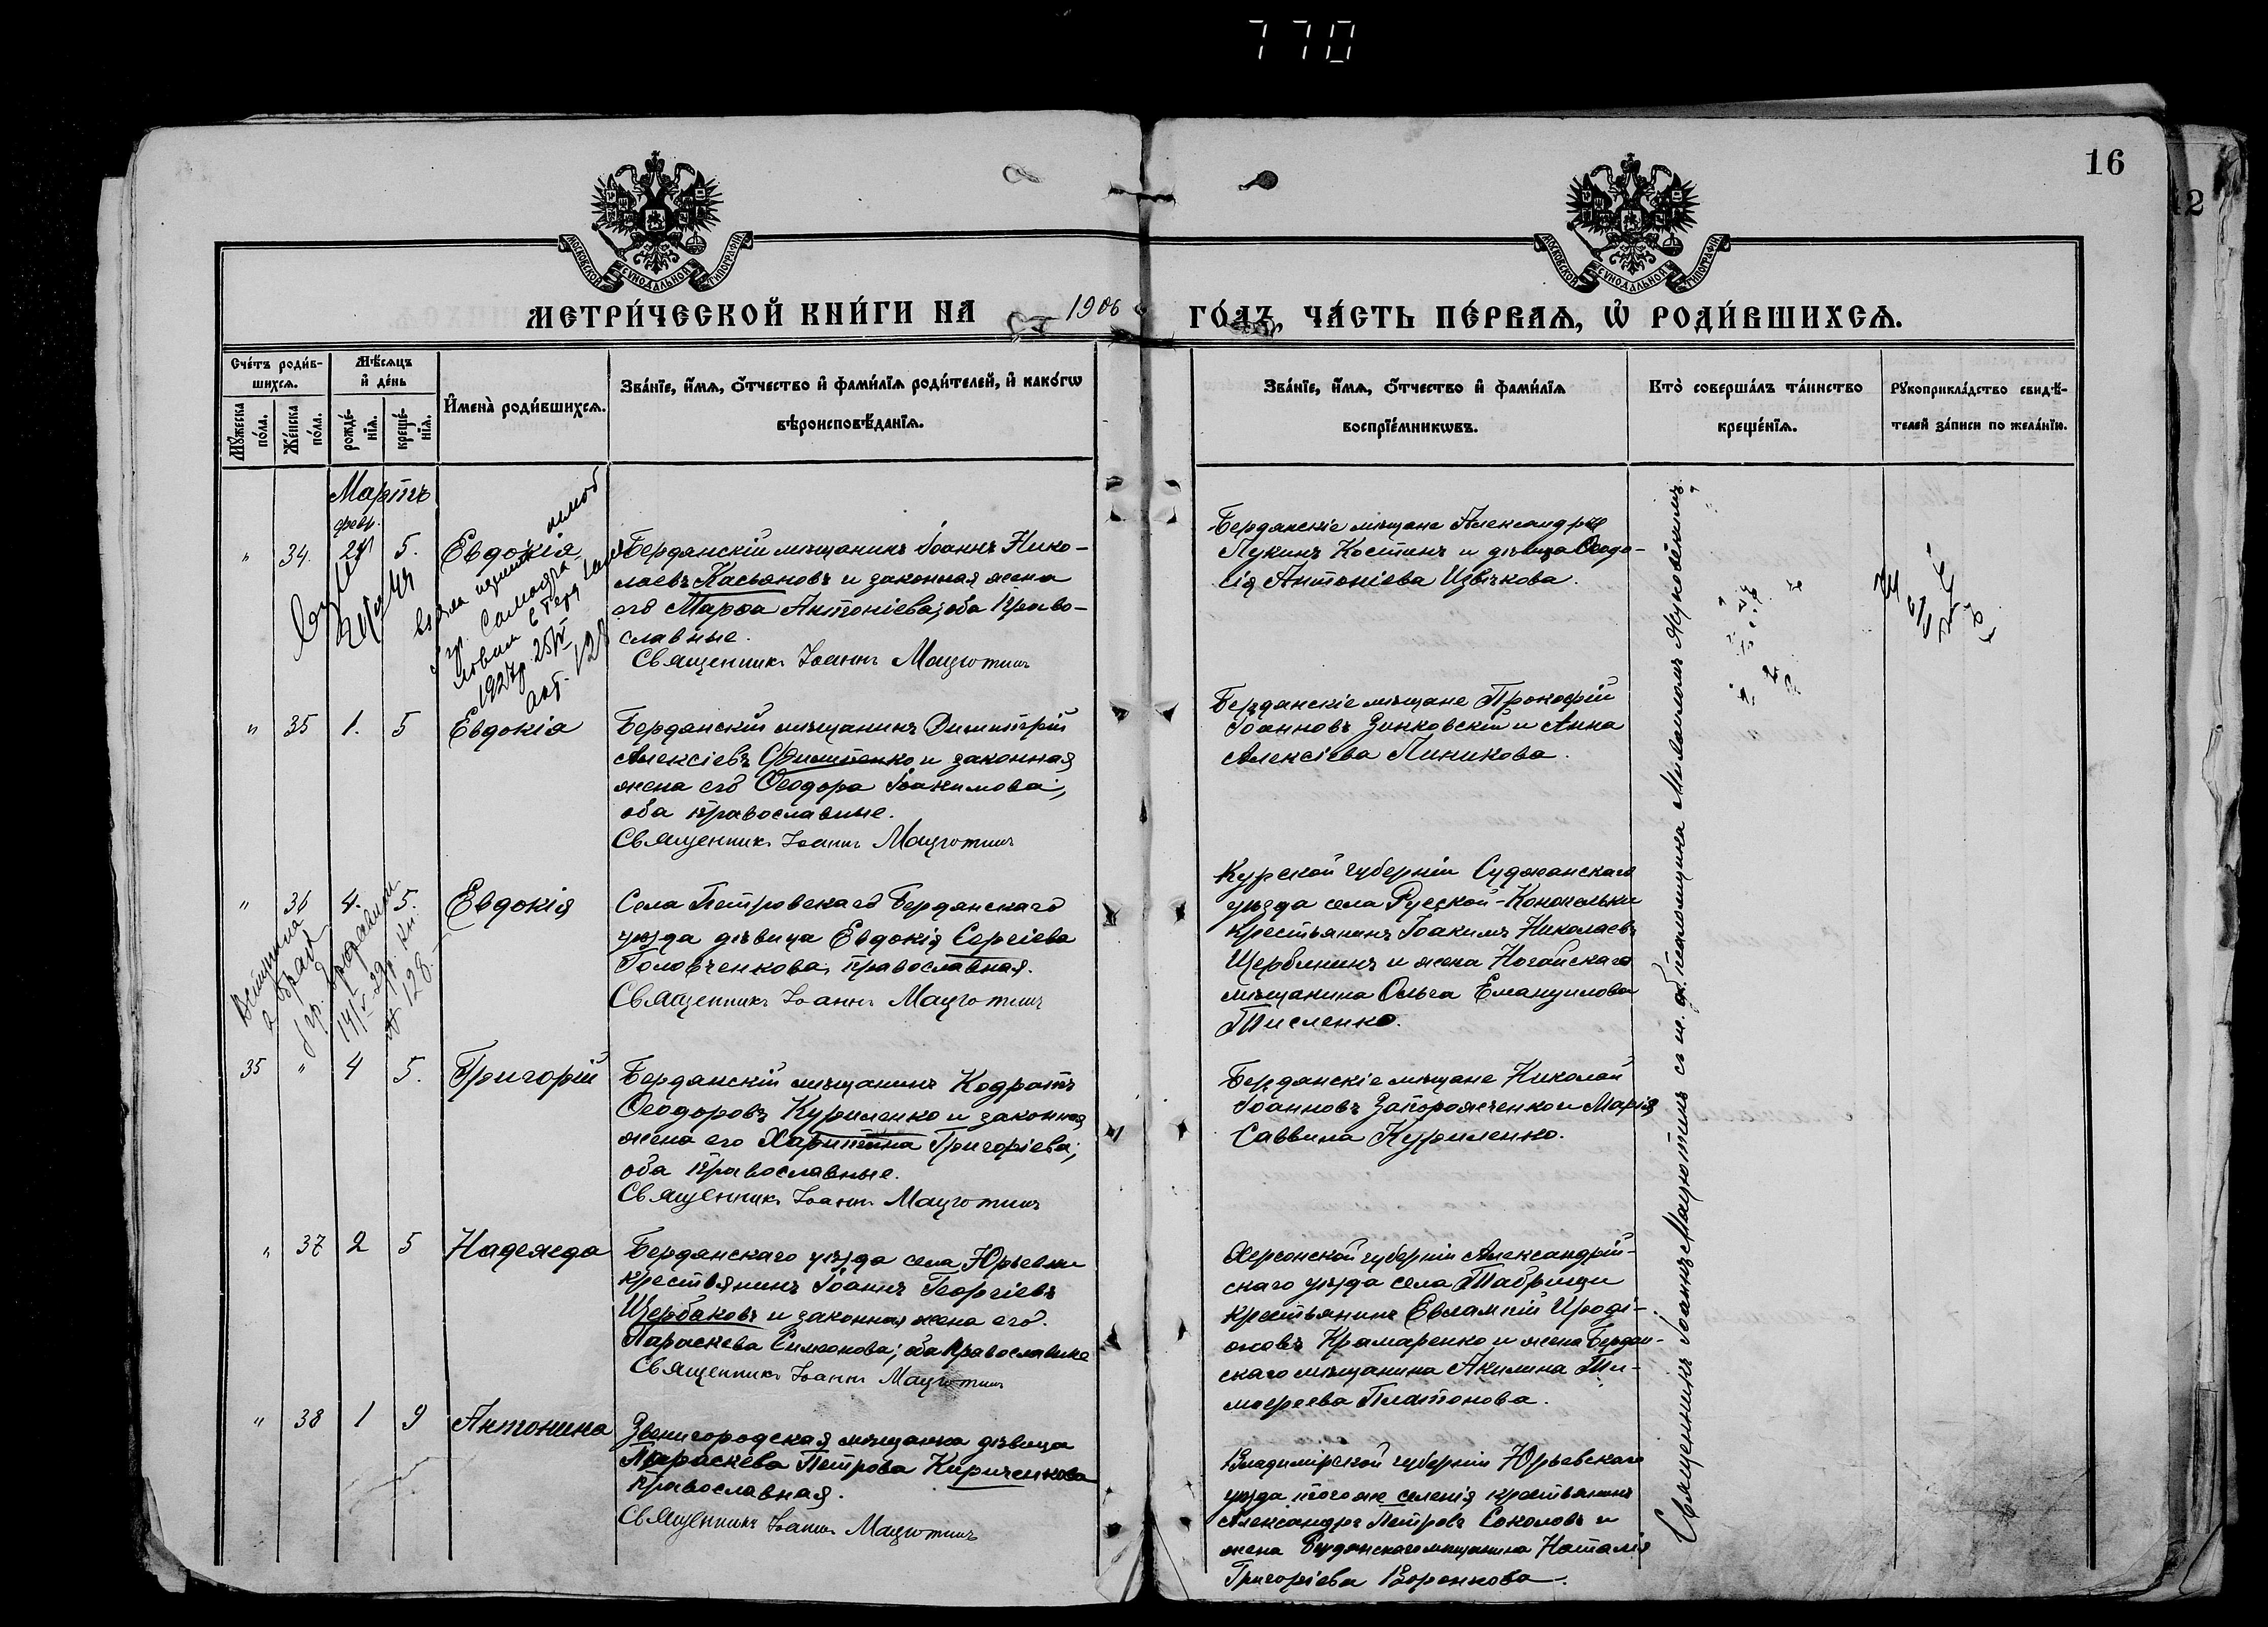 770
16
12
МОСКОВСКОЙ СѴНОДАЛЬНОЙ ТИПОГРАФІИ
МОСКОВСКОЙ СѴНОДАЛЬНОЙ ТИПОГРАФІИ
МЕТРИ́ЧЕСКОЙ КНИ́ГИ НА 1906
ГО́ДЪ, ЧА́СТЬ ПЕ́РВАѦ, Ѡ҆ РОДИ́ВШИХСѦ.
Сче́тъ роди́в-
шихсѧ.
Мꙋ́жеска по́ла.
Же́нска по́ла.
Мѣ́сѧцъ
и҆ де́нь
рожде́-
нїѧ.
креще́-
нїѧ.
И҆мена̀ роди́вшихсѧ.
Зва́нїе, и҆́мѧ, ѻ҆́тчество и҆ фами́лїѧ роди́телей, и҆ како́гѡ
вѣроисповѣ́данїѧ.
Зва́нїе, и҆́мѧ, ѻ҆́тчество и҆ фами́лїѧ
воспрїе́мникѡвъ.
Кто̀ соверша́лъ та́инство
креще́нїѧ.
Рꙋкоприкла́дство свидѣ́-
телей за́писи по жела́нїю.
Мартъ
февр.
" 34. 5. Евдокія
Бердянскій мѣщанинъ Іоаннъ Нико-
лаевъ Касьяновъ и законная жена
его Марѳа Антоніева; оба право-
славные.
Священникъ Іоаннъ Мацютинъ
Бердянскіе мѣщане Александръ
Лукинъ Костинъ и дѣвица Ѳеодо-
сія Антоніева Извѣкова.
1927г. 25/IV
акт. 128
" 35 1. 5 Евдокія
Бердянскій мѣщанинъ Димитрій
Алексіевъ и законная
жена его Ѳеодора Іоакимова;
оба православные.
Священникъ Іоаннъ Мацютинъ
Бердянскіе мѣщане Прокофій
Іоанновъ Зинковскій и Анна
Алексіева Линикова.
" 36 4. 5. Евдокія
Села Петровскаго Бердянскаго
уѣзда дѣвица Евдокія Сергіева
Головченкова, православная.
Священникъ Іоаннъ Мацютинъ
Курской губерніи Суджанскаго
уѣзда села Русской-Конопельки
крестьянинъ Іоакимъ Николаевъ
Щербининъ и жена Ногайскаго
мѣщанина Ольга Емануилова
Тисленко.
Вступила
в бракъ
35 " 4 5. Григорій
Бердянскій мѣщанинъ Кодратъ
Ѳеодоровъ Куриленко и законная
жена его Харитина Григоріева;
оба православные.
Священникъ Іоаннъ Мацютинъ
Бердянскіе мѣщане Николай
Іоанновъ Запорожченко и Марія
Саввина Куриленко.
" 37 2 5 Надежда
Бердянскаго уѣзда села Юрьевки
крестьянинъ Іоаннъ Георгіевъ
Щербаковъ и законная жена его
Параскева Симеонова; оба православные
Священникъ Іоаннъ Мацютинъ
Херсонской губерніи Александрій-
скаго уѣзда села
крестьянинъ Евлампій Иродіо-
новъ Крамаренко и жена Бердян-
скаго мѣщанина Акилина Ти-
моѳеева Платонова.
" 38 1 9 Антонина
Звенигородская мѣщанка дѣвица
Параскева Петрова Кириченкова
православная.
Священникъ Іоаннъ Мацютинъ
Владимірской губерніи Юрьевскаго
уѣзда того же селенія крестьянинъ
Александръ Петровъ Соколовъ и
жена Бердянскаго мѣщанина Наталія
Григоріева Воронкова.
Священникъ Іоаннъ Мацютинъ съ и. д. псаломщика Михаиломъ